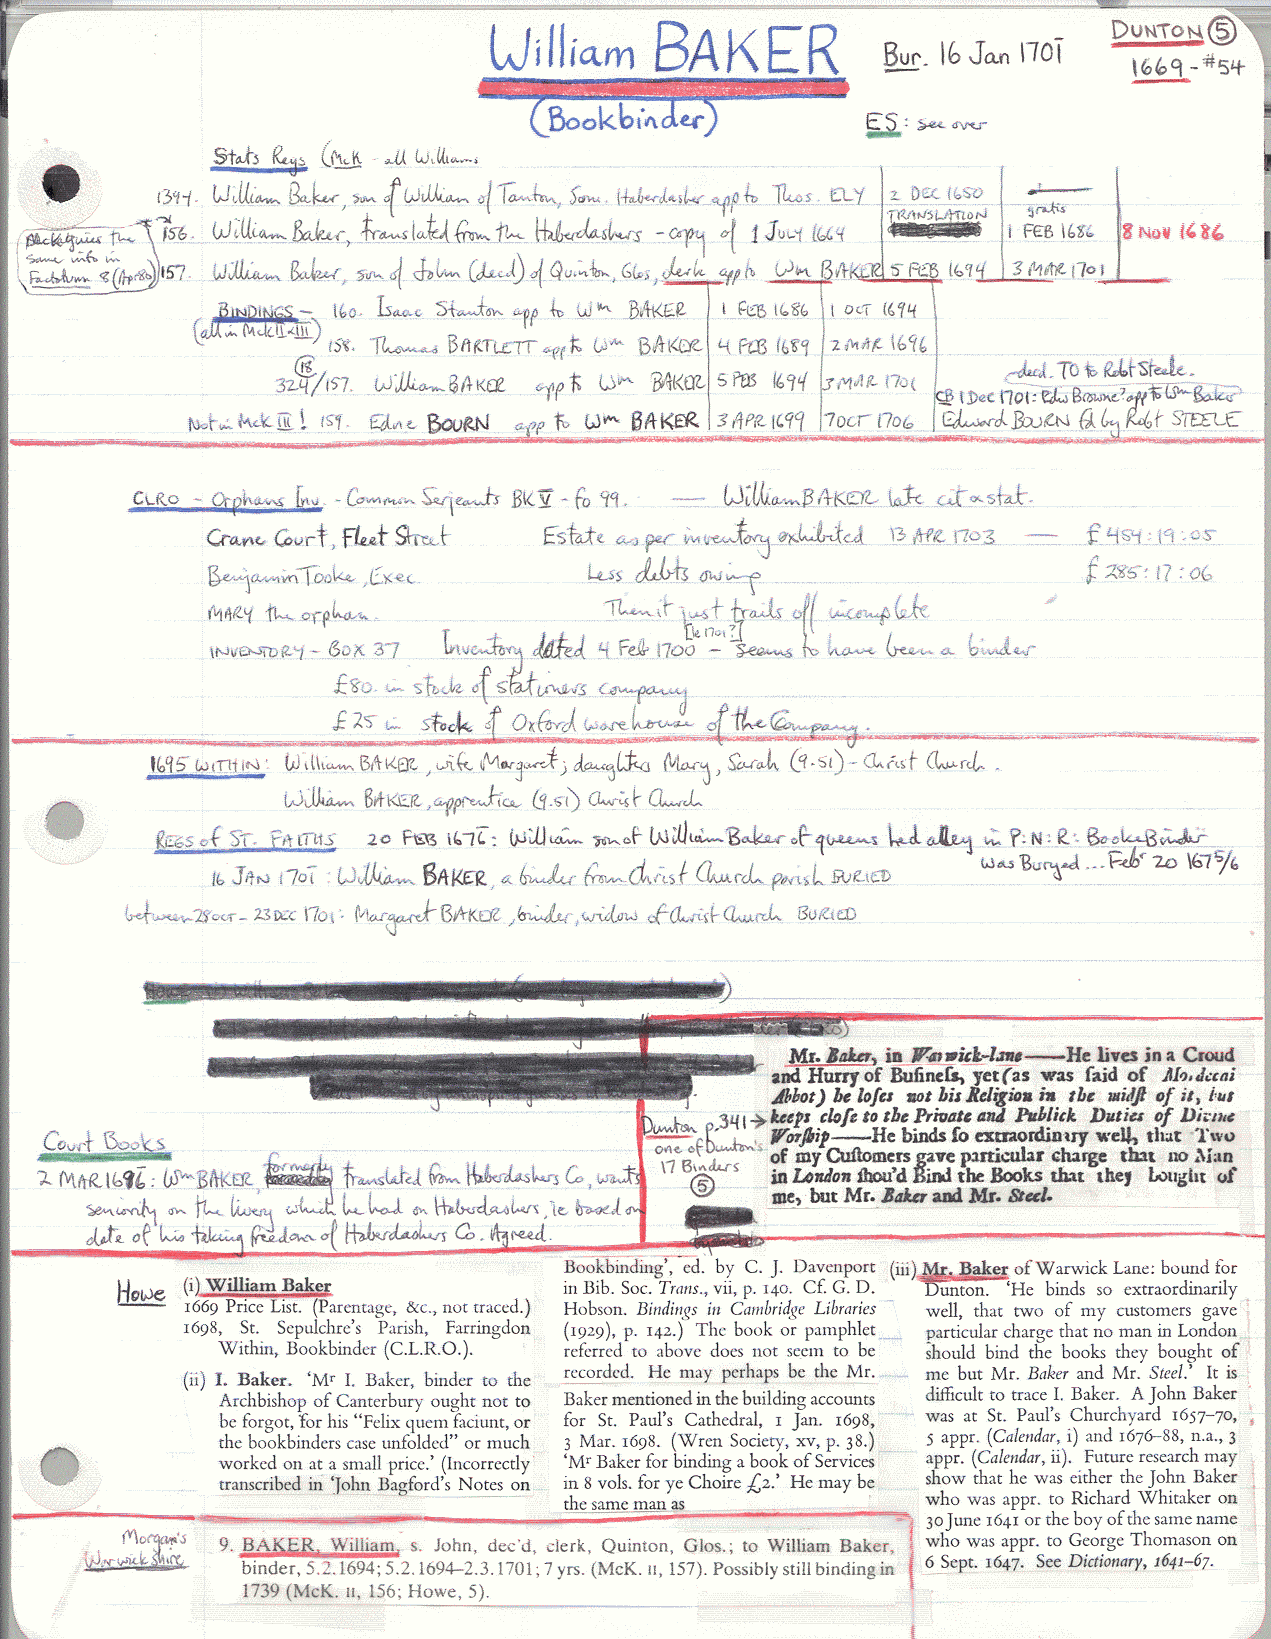 William BAKER
(Bookbinder)
Bur. 16 Jan 1701
DUNTON (5)
1669 - #54
ES: see over
Stats Regs (McK - all Williams
1394. William Baker, son of William of Tanton, Som. Haberdasher app to Thos. ELY | 2 DEC 1650
156. William Baker, translated from the Haberdashers - copy of 1 JULY 1664 | TRANSLATION | gratis 1 FEB 1686 | 8 NOV 1686
same info in
Factotum 8 (Apr 80)
157. William Baker, son of John (decd) of Quinton, Glos, clerk app to Wm BAKER | 5 FEB 1694 | 3 MAR 1701
BINDINGS - 160. Isaac Stanton app to Wm BAKER | 1 FEB 1686 | 1 OCT 1694
(all in McK II & III)
158. Thomas BARTLETT app to Wm BAKER | 4 FEB 1689 | 2 MAR 1696
(18)
324/157. William BAKER app to Wm BAKER | 5 FEB 1694 | 3 MAR 1701
decd. TO to Robt Steele.
CB 1 Dec 1701: Edw Browne? app to Wm Baker
Not in McK III! 159. Edne BOURN app to Wm BAKER | 3 APR 1699 | 7 OCT 1706 | Edward BOURN fd by Robt STEELE
CLRO - Orphans Inv. - Common Serjeants BK V - fo 99. — William BAKER late cit & stat.
Crane Court, Fleet Street Estate as per inventory exhibited 13 APR 1703 — £454:19:05
Benjamin Tooke, Exec. Less debts owing £285:17:06
MARY the orphan. Then it just trails off incomplete
[ie 1701?]
INVENTORY - BOX 37 Inventory dated 4 Feb 1700 - seems to have been a binder
£80 in stock of stationers company
£25 in stock of Oxford warehouse of the Company.
1695 WITHIN: William BAKER, wife Margaret; daughters Mary, Sarah (9.51) - Christ Church.
William BAKER, apprentice (9.51) Christ Church
REGS of ST. FAITHS 20 FEB 1676: William son of William Baker of queens hed alley in P:N:R: BookeBinder
was Buryed ... Febr 20 1675/6
16 JAN 1701: William BAKER, a binder from Christ Church parish BURIED
between 28 OCT - 23 DEC 1701: Margaret BAKER, binder, widow of Christ Church BURIED
Mr. Baker, in Warwick-lane——He lives in a Croud
and Hurry of Business, yet (as was said of Mordecai
Abbot) he loses not his Religion in the midst of it, but
keeps close to the Private and Publick Duties of Divine
Worship——He binds so extraordinary well, that Two
of my Customers gave particular charge that no Man
in London shou'd Bind the Books that they bought of
me, but Mr. Baker and Mr. Steel.
Dunton p.341→
one of Dunton's
17 Binders
(5)
Court Books
2 MAR 1696: Wm BAKER, formerly translated from Haberdashers Co, wants
seniority on the livery which he had on Haberdashers, ie based on
date of his taking freedom of Haberdashers Co. Agreed.
Howe
(i) William Baker
1669 Price List. (Parentage, &c., not traced.)
1698, St. Sepulchre's Parish, Farringdon
Within, Bookbinder (C.L.R.O.).
(ii) I. Baker. 'Mr I. Baker, binder to the
Archbishop of Canterbury ought not to
be forgot, for his "Felix quem faciunt, or
the bookbinders case unfolded" or much
worked on at a small price.' (Incorrectly
transcribed in 'John Bagford's Notes on
Bookbinding', ed. by C. J. Davenport
in Bib. Soc. Trans., vii, p. 140. Cf. G. D.
Hobson. Bindings in Cambridge Libraries
(1929), p. 142.) The book or pamphlet
referred to above does not seem to be
recorded. He may perhaps be the Mr.
Baker mentioned in the building accounts
for St. Paul's Cathedral, 1 Jan. 1698,
3 Mar. 1698. (Wren Society, xv, p. 38.)
'Mr Baker for binding a book of Services
in 8 vols. for ye Choire £2.' He may be
the same man as
(iii) Mr. Baker of Warwick Lane: bound for
Dunton. 'He binds so extraordinarily
well, that two of my customers gave
particular charge that no man in London
should bind the books they bought of
me but Mr. Baker and Mr. Steel.' It is
difficult to trace I. Baker. A John Baker
was at St. Paul's Churchyard 1657–70,
5 appr. (Calendar, i) and 1676–88, n.a., 3
appr. (Calendar, ii). Future research may
show that he was either the John Baker
who was appr. to Richard Whitaker on
30 June 1641 or the boy of the same name
who was appr. to George Thomason on
6 Sept. 1647. See Dictionary, 1641–67.
Morgan's
Warwickshire
9. BAKER, William, s. John, dec'd, clerk, Quinton, Glos.; to William Baker,
binder, 5.2.1694; 5.2.1694–2.3.1701; 7 yrs. (McK. II, 157). Possibly still binding in
1739 (McK. II, 156; Howe, 5).